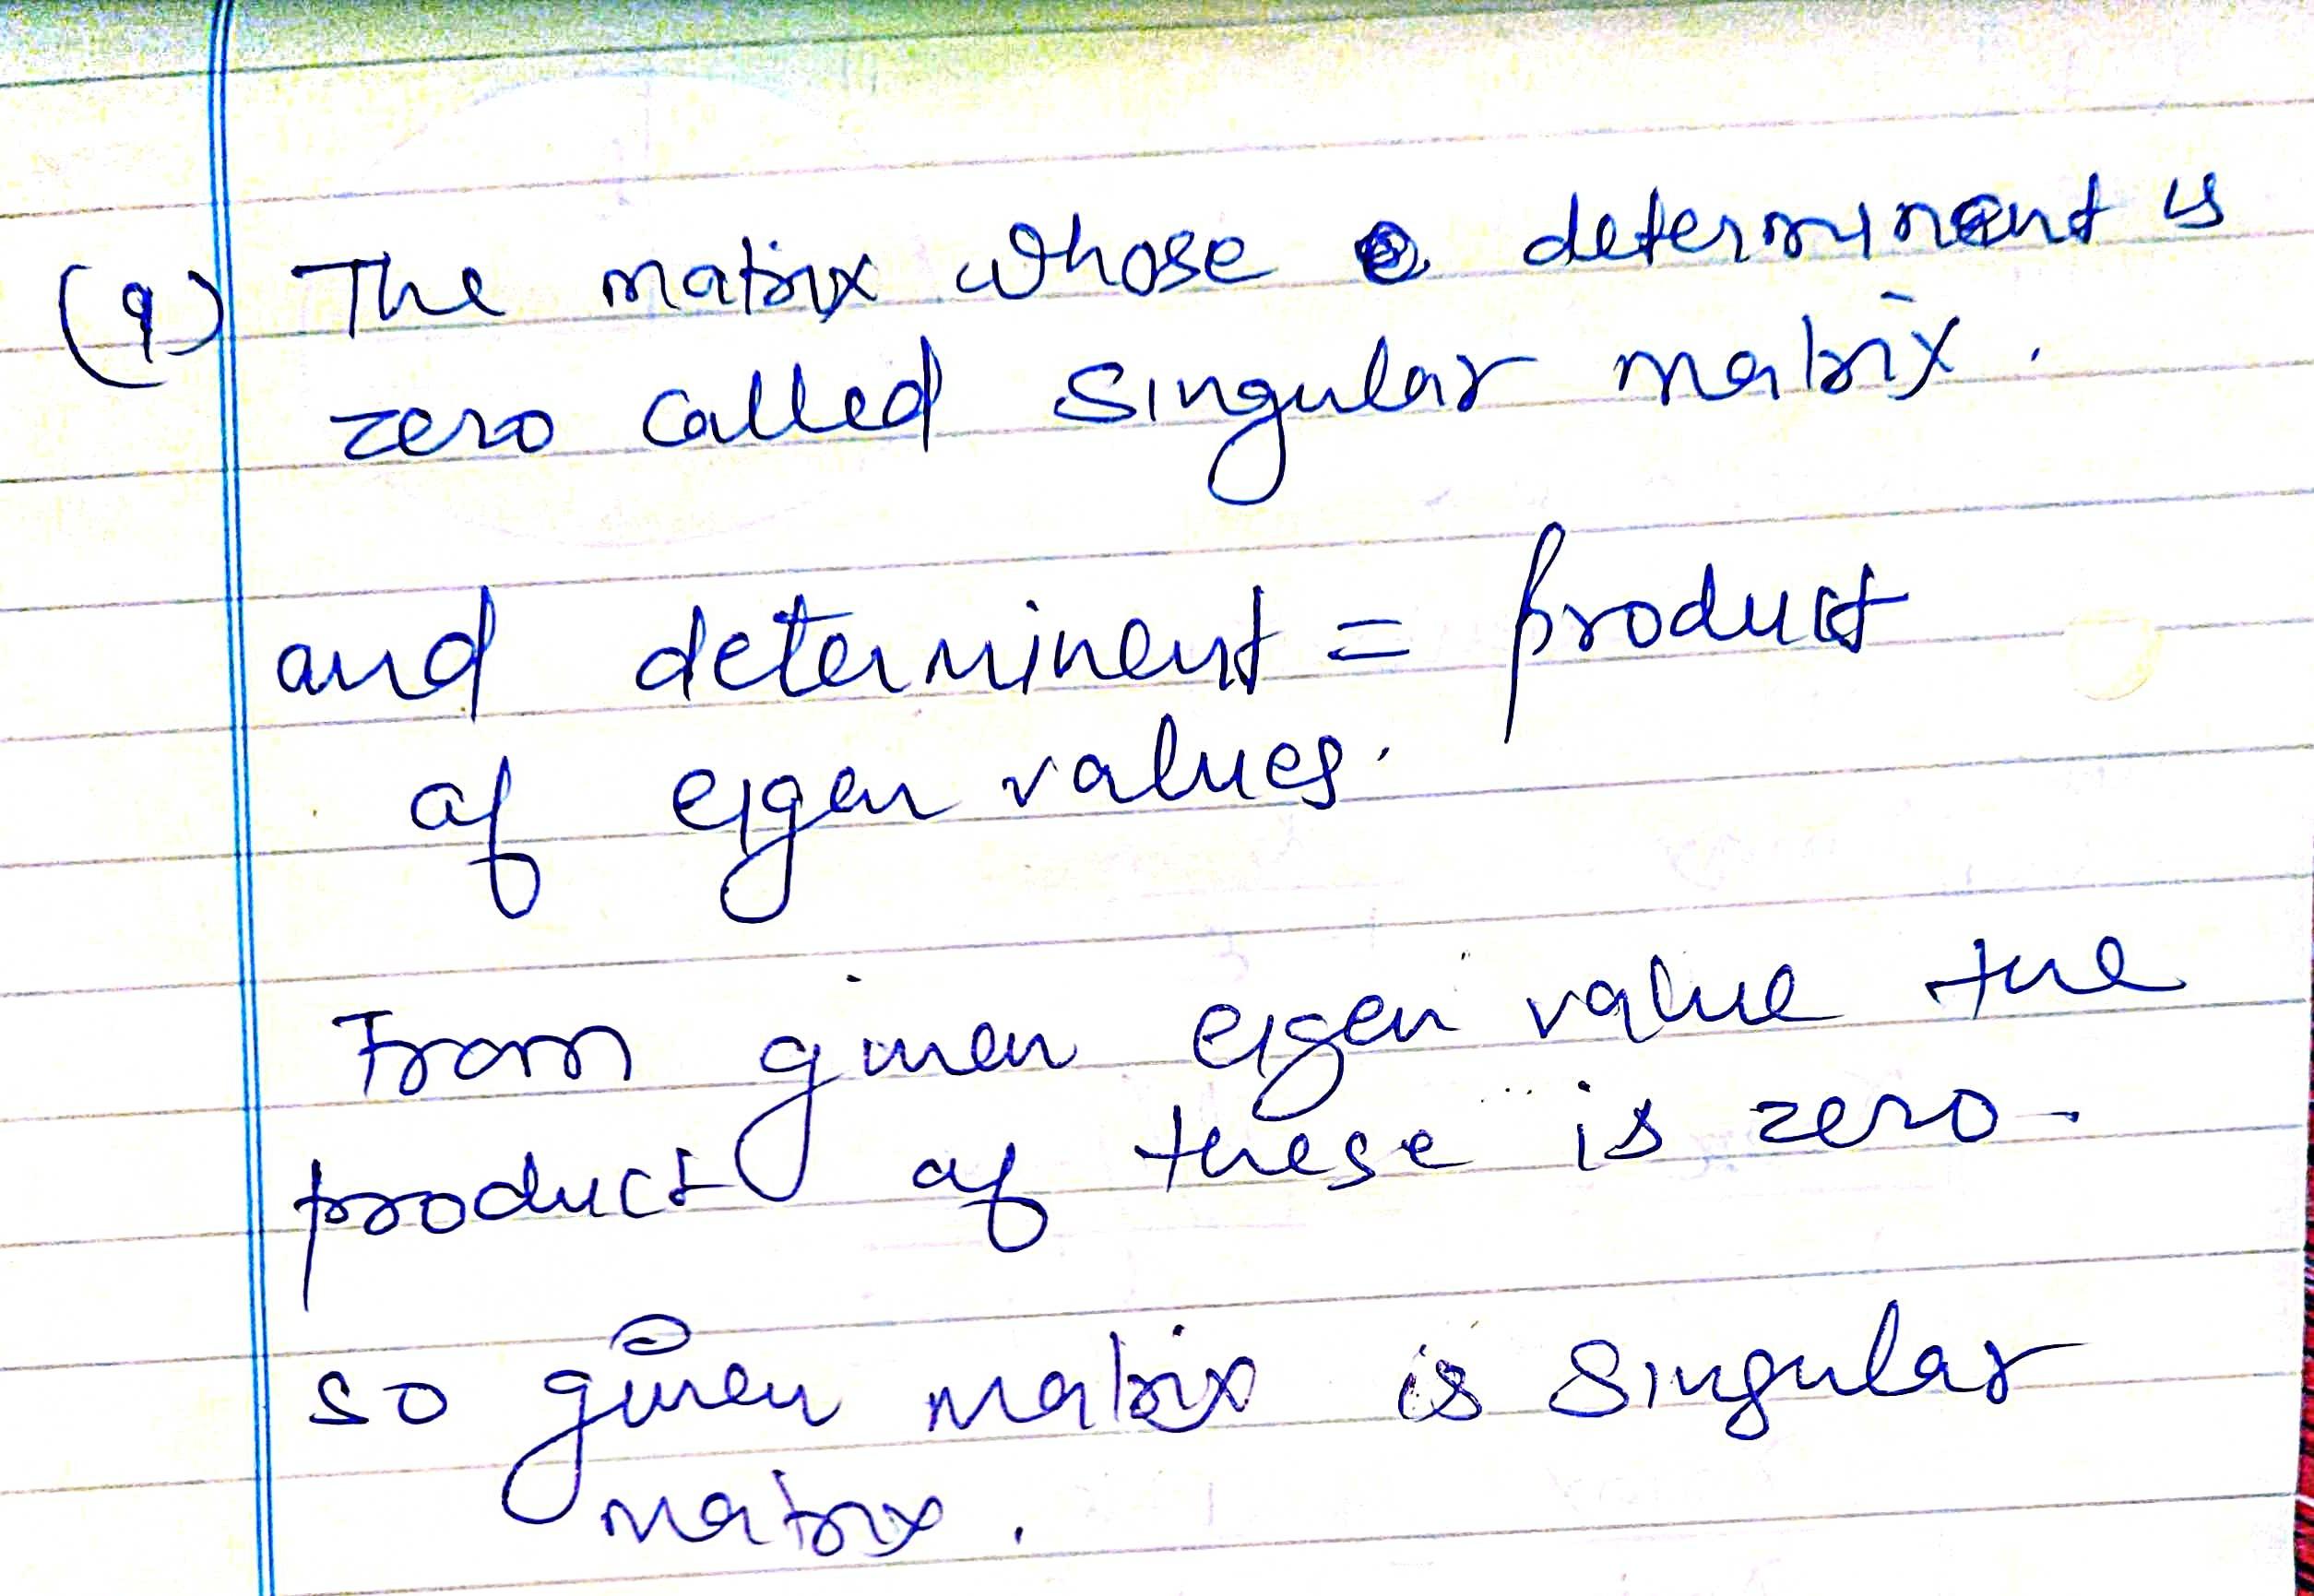 (9) The matrix whose determinant is
zero called singular matrix.
and determinent = product
of eigen values.
From given eigen value the
product of these is zero.
so given matrix is singular
matrix.